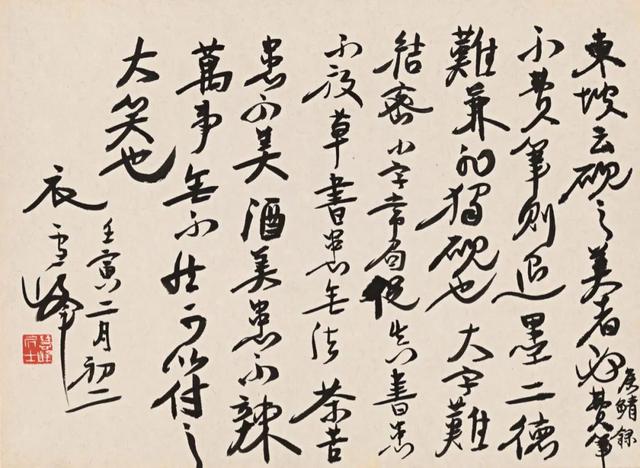 侯鯖録
東坡云硯之美者必費筆
不費筆則退墨二德
難兼非獨硯也大字難
結密小字常局促真書患
不放草書患無法茶苦
患不美酒美患不辣
萬事無不然可以付之
大笑也
壬寅二月初二
衣雪峰